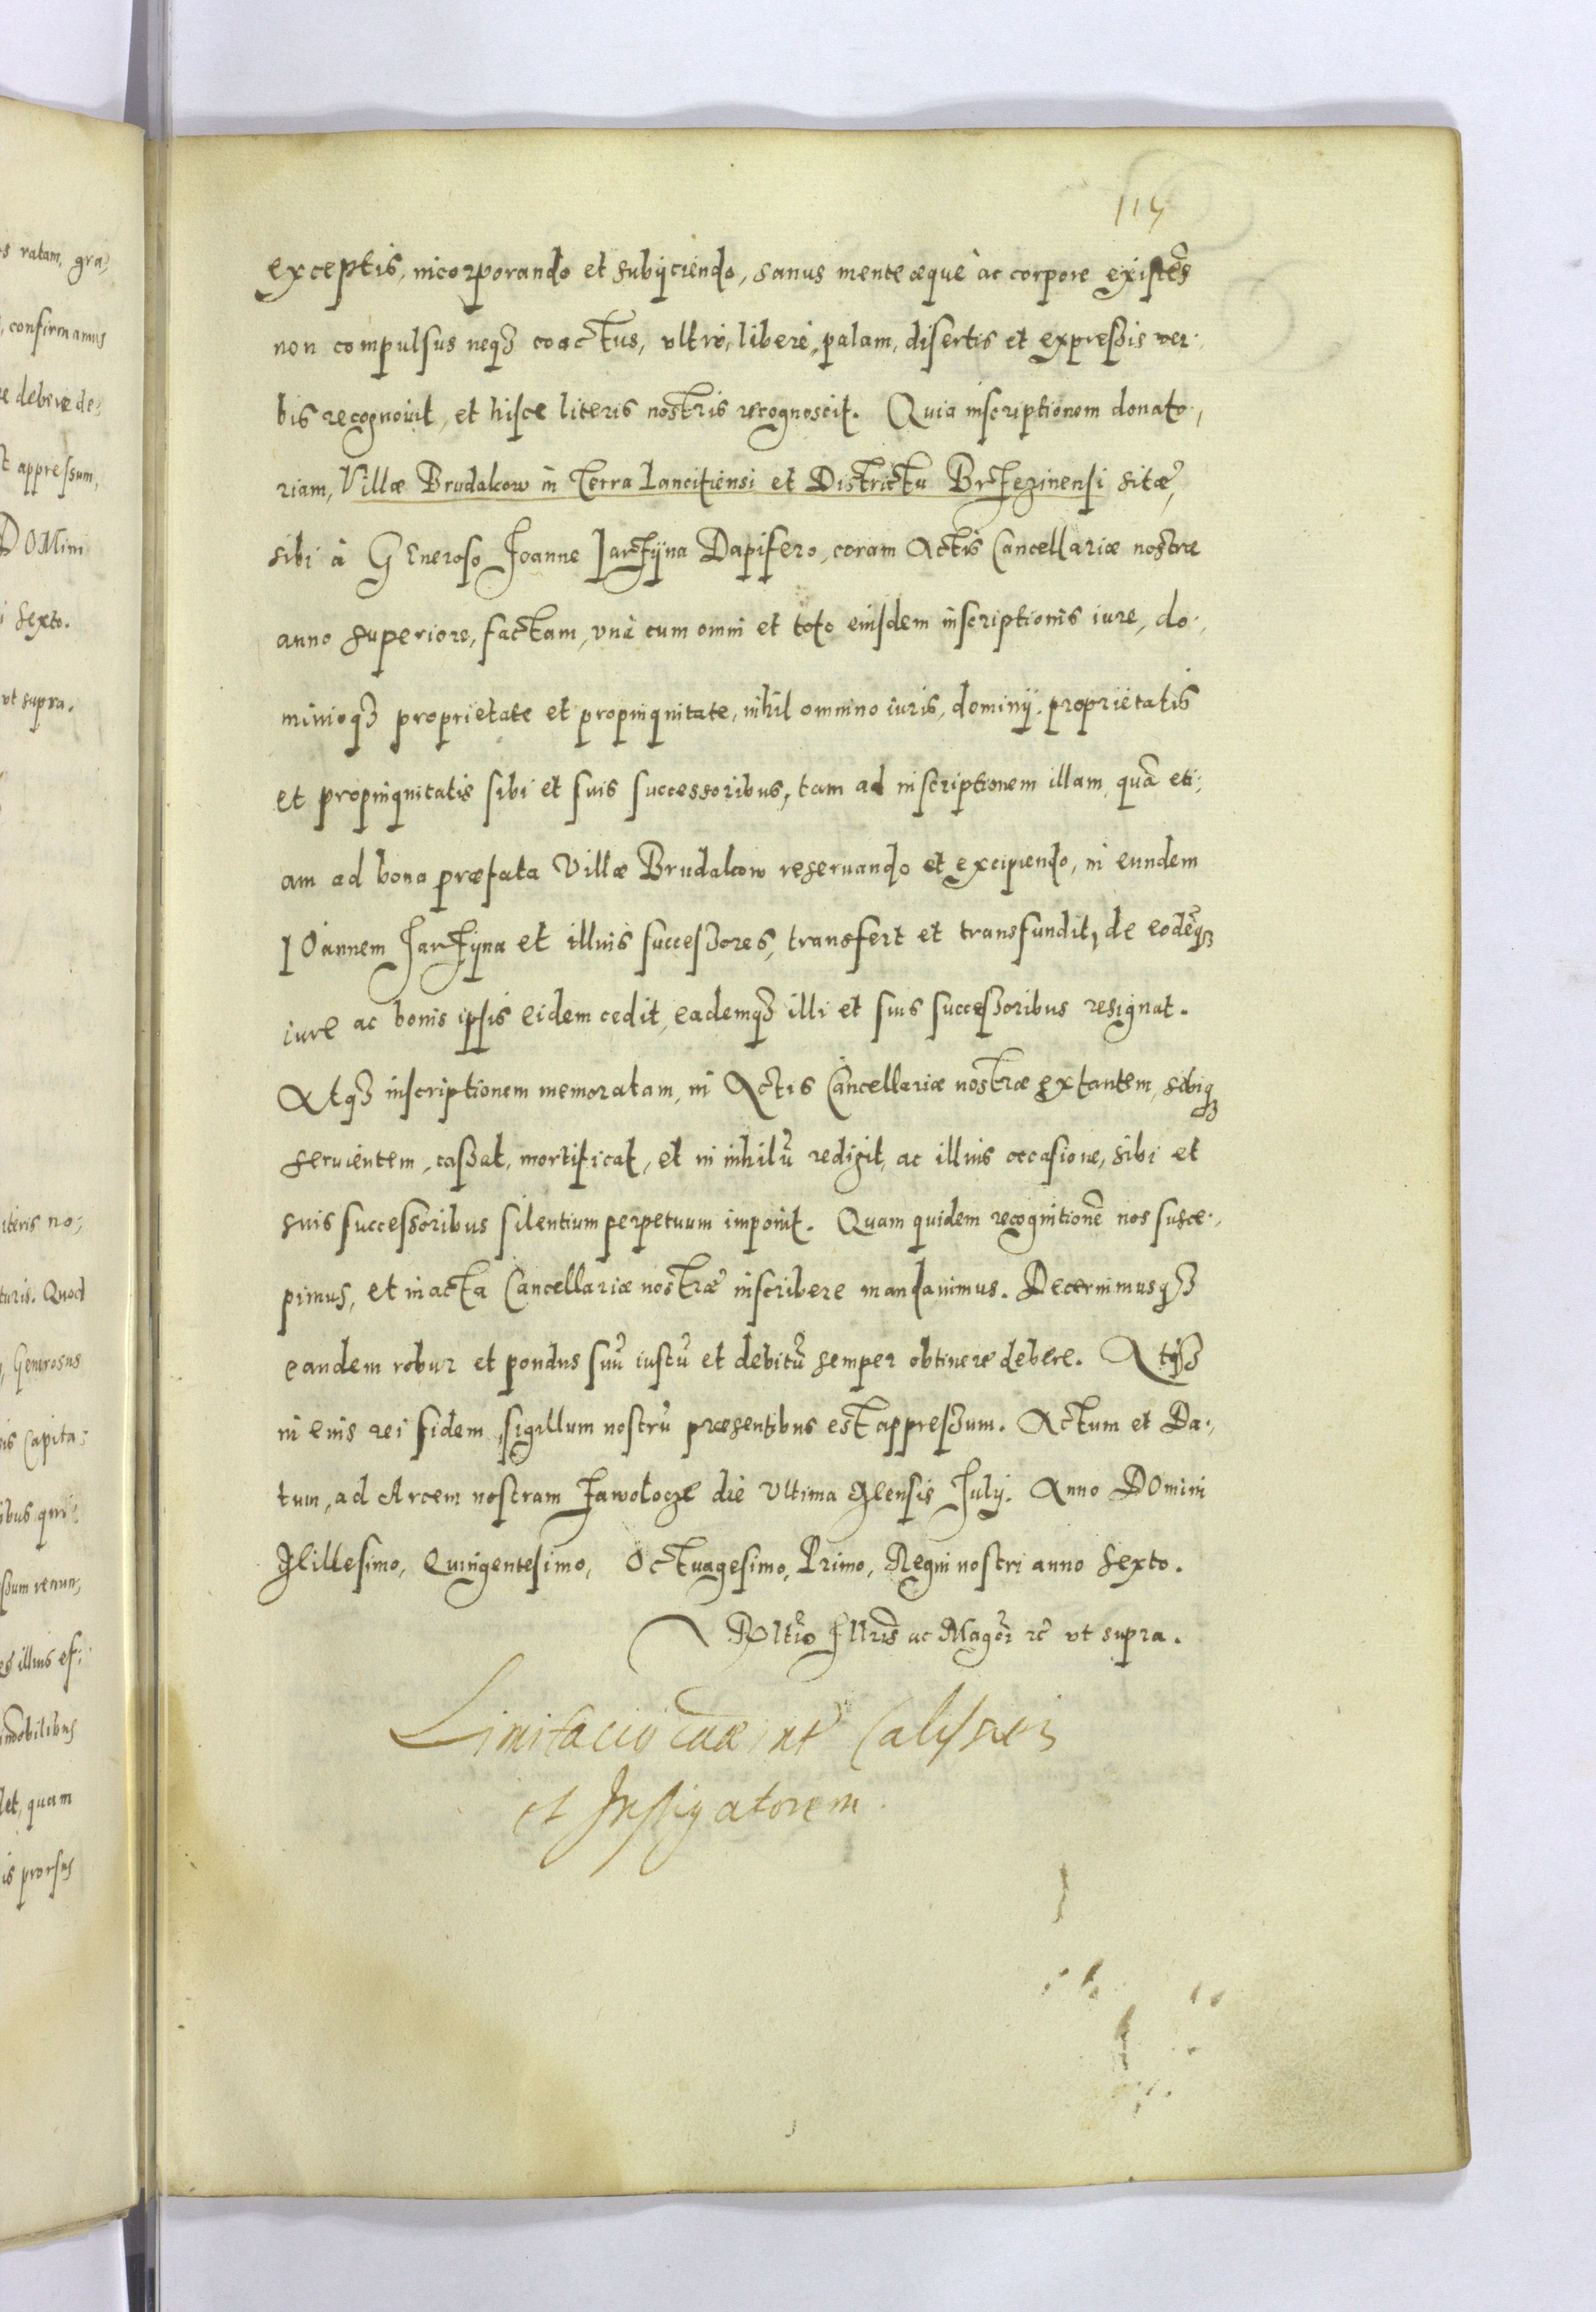 115
exceptis, incorporando et subijciendo, sanus mente æquè ac corpore existẽs
non compulsus neqꝫ coactus, vltrò, liberè, palam, disertis et expreßis ver-
bis recognouit, et hisce literis nostris recognoscit. Quia inscriptionem donato-
riam, Villæ Brudakow in Terra Lancitiensi et Districtu Brzezinensi sitæ,
sibi à GEneroso Joanne Jarzÿna Dapifero, coram Actis Cancellariæ nostræ
anno superiore, factam, vnà cum omni et toto eiusdem inscriptionis iure, do-
minioqꝫ proprietate et propinquitate, nihil omnino iuris, dominij, proprietatis
et propinquitatis sibi et suis successoribus, tam ad inscriptionem illam, quã eti-
am ad bona præfata Villæ Brudakow reseruando et excipiendo, in eundem
IOannem Jarzÿna et illius succeßores, transfert et transfundit, de eodẽqꝫ
iure ac bonis ipsis eidem cedit, eademqꝫ illi et suis succeßoribus resignat.
Atqꝫ inscriptionem memoratam, in Actis Cancellariæ nostræ extantem, sibiqꝫ
seruientem, caßat, mortificat, et in nihilũ redigit, ac illius occasione, sibi et
suis succeßoribus silentium perpetuum imponit. Quam quidem recognitionẽ nos susce-
pimus, et in acta Cancellariæ nostræ inscribere mandauimus. Decernimusqꝫ
eandem robur et pondus suũ iustũ et debitũ semper obtinere debere. Atqꝫ
in euis rei fidem, sigillum nostrũ præsentibus est appreßum. Actum et Da-
tum, ad Arcem nostram Zawołocze die Vltima Mensis Julij. Anno DOmini
Millesimo, Quingentesimo, Octuagesimo, Primo, Regni nostri anno Sexto.
Rltio Illris ac Magci rc ut supra.
Limitacio cae int Calissien
et Instigatorem.